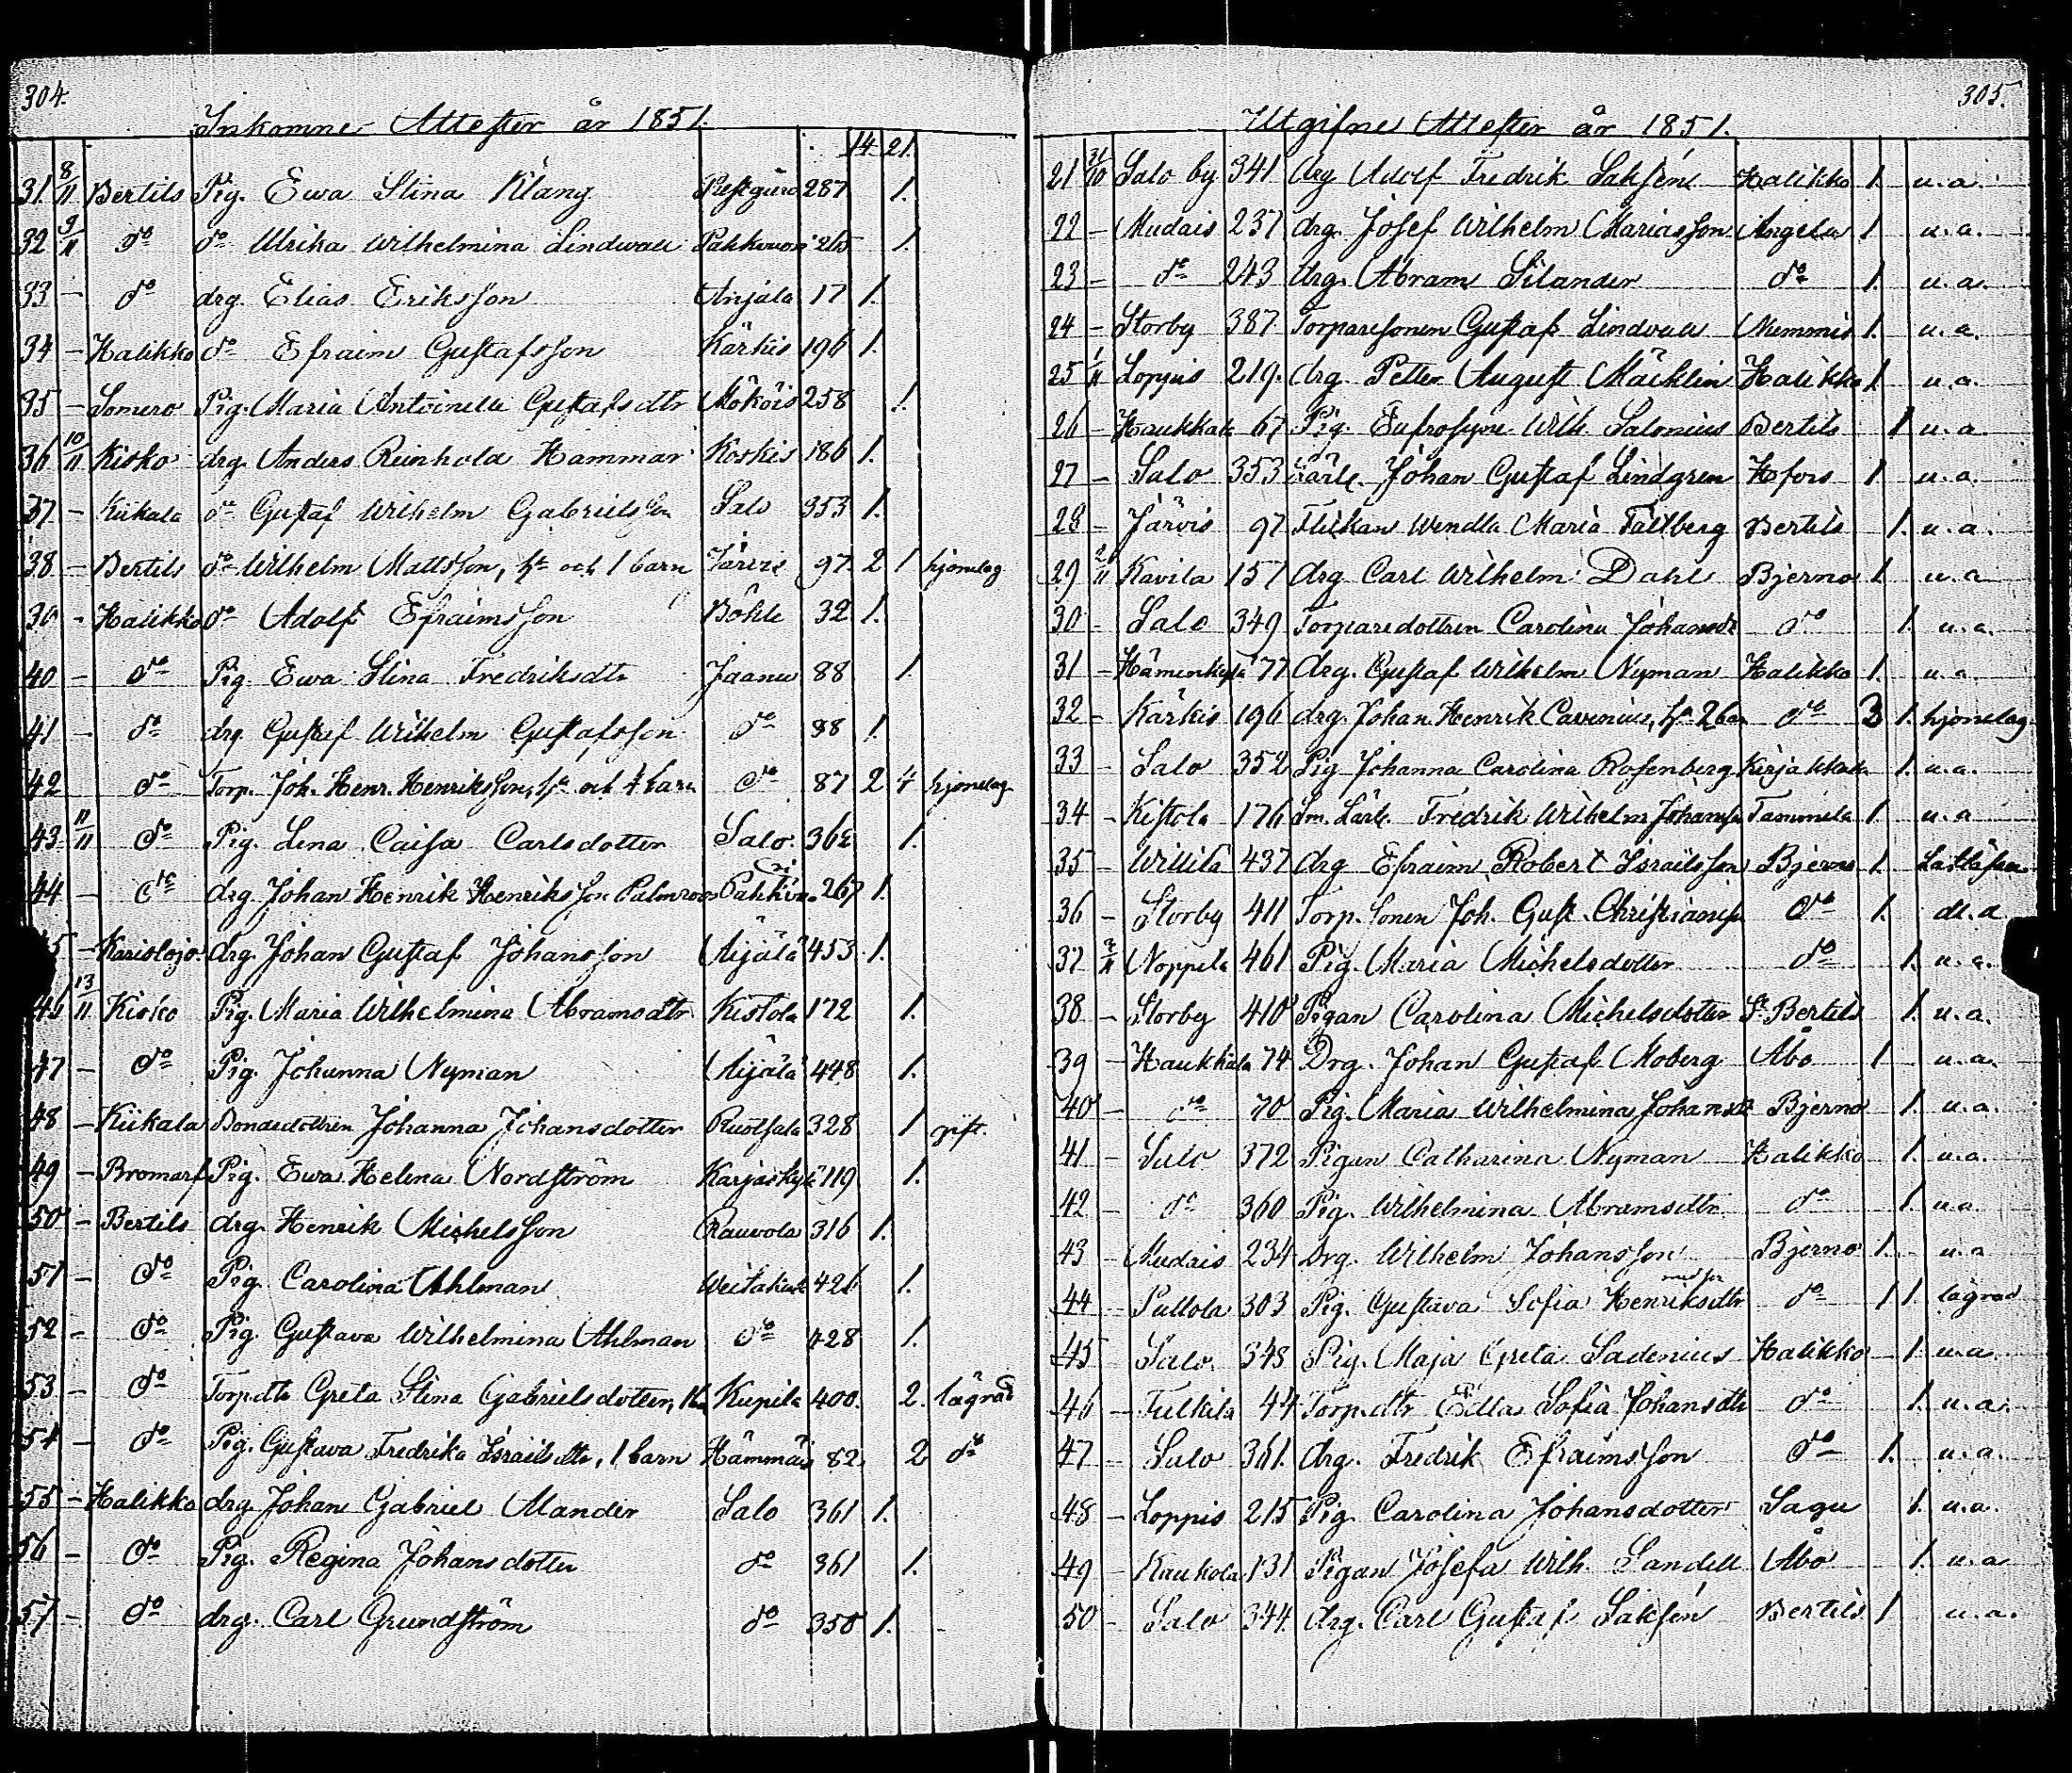 304.
Inkomne Attester år 1851.
14. 21.
31. 8/11 Bertils Pig. Ewa Stina Klang Prestgård 287 1.
32 9/11 do do Ulrika Wilhelmina Lindwall 265 1.
33 - do drg. Elias Eriksson Anjala 17 1.
34 - Halikko do Efraim Gustafsson Kärkis 196 1.
35 - Somero Pig. Maria Antoinetta Gustafsdtr Mököis 258 1.
36 10/11 Kisko drg. Anders Reinhold Hammar Koskis 186 1.
37 - Kiikala do Gustaf Wilhelm Gabrielsson Salo 353 1.
38 - Bertils do Wilhelm Mattsson, h. och 1 barn Järvis 97. 2 1 hjonelag
39 - Halikko do Adolf Efraimsson Böhle 32 1.
40 - do Pig. Ewa Stina Fredriksdtr Jaanu 88 1.
41 - do drg. Gustaf Wilhelm Gustafsson do 88 1.
42 do Torp. Joh. Henr. Henriksson, h. och 4 barn do 87 2 4 hjonelag
43 11/11 do Pig. Lena Caisa Carlsdotter Salo. 362 1.
44 - do drg. Johan Henrik Henriksson Palmroos 267 1.
45 - Karislojo. drg. Johan Gustaf Johansson Aijälä 453 1.
46 13/11 Kisko Pig. Maria Wilhelmina Abramsdtr Kistola 172 1.
47 - do Pig. Johanna Nyman Aijälä 448 1.
48 - Kiikala Bondedottren Johanna Johansdotter Ruotsala 328 1 gift.
49 - Bromarf Pig. Ewa Helena Nordström Karjaskylä 119 1.
50 - Bertils drg. Henrik Michelsson Rauvola 316 1.
51 - do Pig. Carolina Ahlman 426 1.
52 - do Pig. Gustava Wilhelmina Ahlman do 428 1.
53 - do Torpdtr Greta Stina Gabrielsdotter, Kupila 400. 2. lägrad
54 - do Pig. Gustava Fredrika Israelsdtr, 1 barn Hämmäis 82. 2 do
55 - Halikko drg. Johan Gabriel Mander Salo 361 1.
56 - do Pig. Regina Johansdotter do 361 1.
57 - do drg. Carl Grundström do 350 1.
305.
Utgifne Attester år 1851.
21 31/10 Salo by 341 drg Adolf Fredrik Saksén Halikko 1. u.a.
22 - Mudais 237 drg. Josef Wilhelm Mariasson Angela 1 u.a.
23 - do 243 drg. Abram Silander do 1. u.a.
24 - Storby 387. Torparesonen Gustaf Lindvall Nummis 1. u.a.
25 1/11 Loppis 219. drg. Petter August Mäcklin Halikko 1 u.a.
26 - Haukkala 67 Pig. Eufrosyne Wilh. Salonius Bertils 1 u.a
27 - Salo 353 Lärl. Johan Gustaf Lindgren Hfors 1 u.a.
28 - Järvis 97 Flickan Wendla Maria Fältberg Bertils 1. u.a.
29 2/11 Kavila 157 drg. Carl Wilhelm Dahl Bjerno 1 u.a
30 - Salo 349 Torparedottren Carolina Johansdr do 1. u.a.
31 - Hämenkylä 77 drg. Gustaf Wilhelm Nyman Halikko 1. u.a.
32 - Kärkis 196 drg. Johan Henrik Cavenius, h. 2 bar do 3 1. hjonelag
33 - Salo 352 Pig Johanna Carolina Rosenberg Kirjakkala 1. u.a.
34 - Kistola 176 Sm. Lärl. Fredrik Wilhelm Johansson Tammela 1. u.a
35 - Willilä 437 drg Efraim Robert Israelsson Bjerno 1.
36 - Storby 411 Torp. Sonen Joh. Gust. Christiansson do 1. u.a
37 2/11 Noppila 461 Pig. Maria Michelsdotter do 1. u.a.
38 - Storby 410 Pigan Carolina Michelsdotter St Bertils 1. u.a.
39 - Haukkala 74 Drg. Johan Gustaf Moberg Åbo 1 u.a.
40 - do 70 Pig. Maria Wilhelmina Johansdr Bjerno 1. u.a.
41 - Salo 372 Pigan Catharina Nyman Halikko 1. u.a.
42 - do 360 Pig. Wilhelmina Abramsdtr do 1. u.a
43 - Mudais 234 Drg. Wilhelm Johansson Bjerno 1. u.a
44 - Pullola 303 Pig. Gustava Sofia Henriksdtr do 1 1. lägrad
45 - Salo. 348 Pig. Maja Greta Sadenius Halikko 1 u.a.
46 - Fulkila 44 Torp.dtr Edla Sofia Johansdtr do 1. u.a.
47 - Salo 361. drg. Fredrik Efraimsson do 1. u.a.
48 - Loppis 215 Pig. Carolina Johansdotter Sagu 1. u.a.
49 - Kaukola 131 Pigan Josefa Wilh. Sandell Åbo 1. u.a
50 - Salo 344. drg. Carl Gustaf Saksén Bertils 1 u.a.